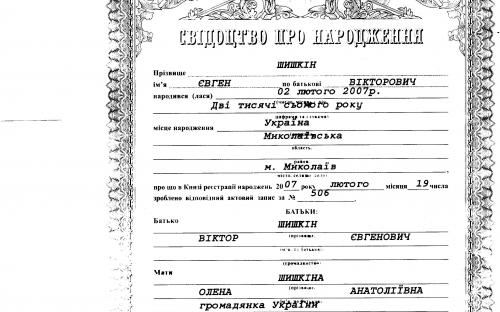 СВІДОЦТВО ПРО НАРОДЖЕННЯ
Прізвище ШИШКІН
ім'я ЄВГЕН по батькові ВІКТОРОВИЧ
народився (лася) 02 лютого 2007р.
Дві тисячі сьомого року
цифрами та словами
місце народження Україна
Миколаївська
область,
район
м. Миколаїв
місто, селище, село
про що в Книзі реєстрації народжень 2007 року ЛЮТОГО місяця 19 числа
зроблено відповідний актовий запис за № 506
БАТЬКИ:
Батько ШИШКІН
(прізвище,
ВІКТОР ЄВГЕНОВИЧ
ім'я, по батькові)
(громадянство)
Мати ШИШКІНА
(прізвище,
ОЛЕНА АНАТОЛІЇВНА
громадянка України